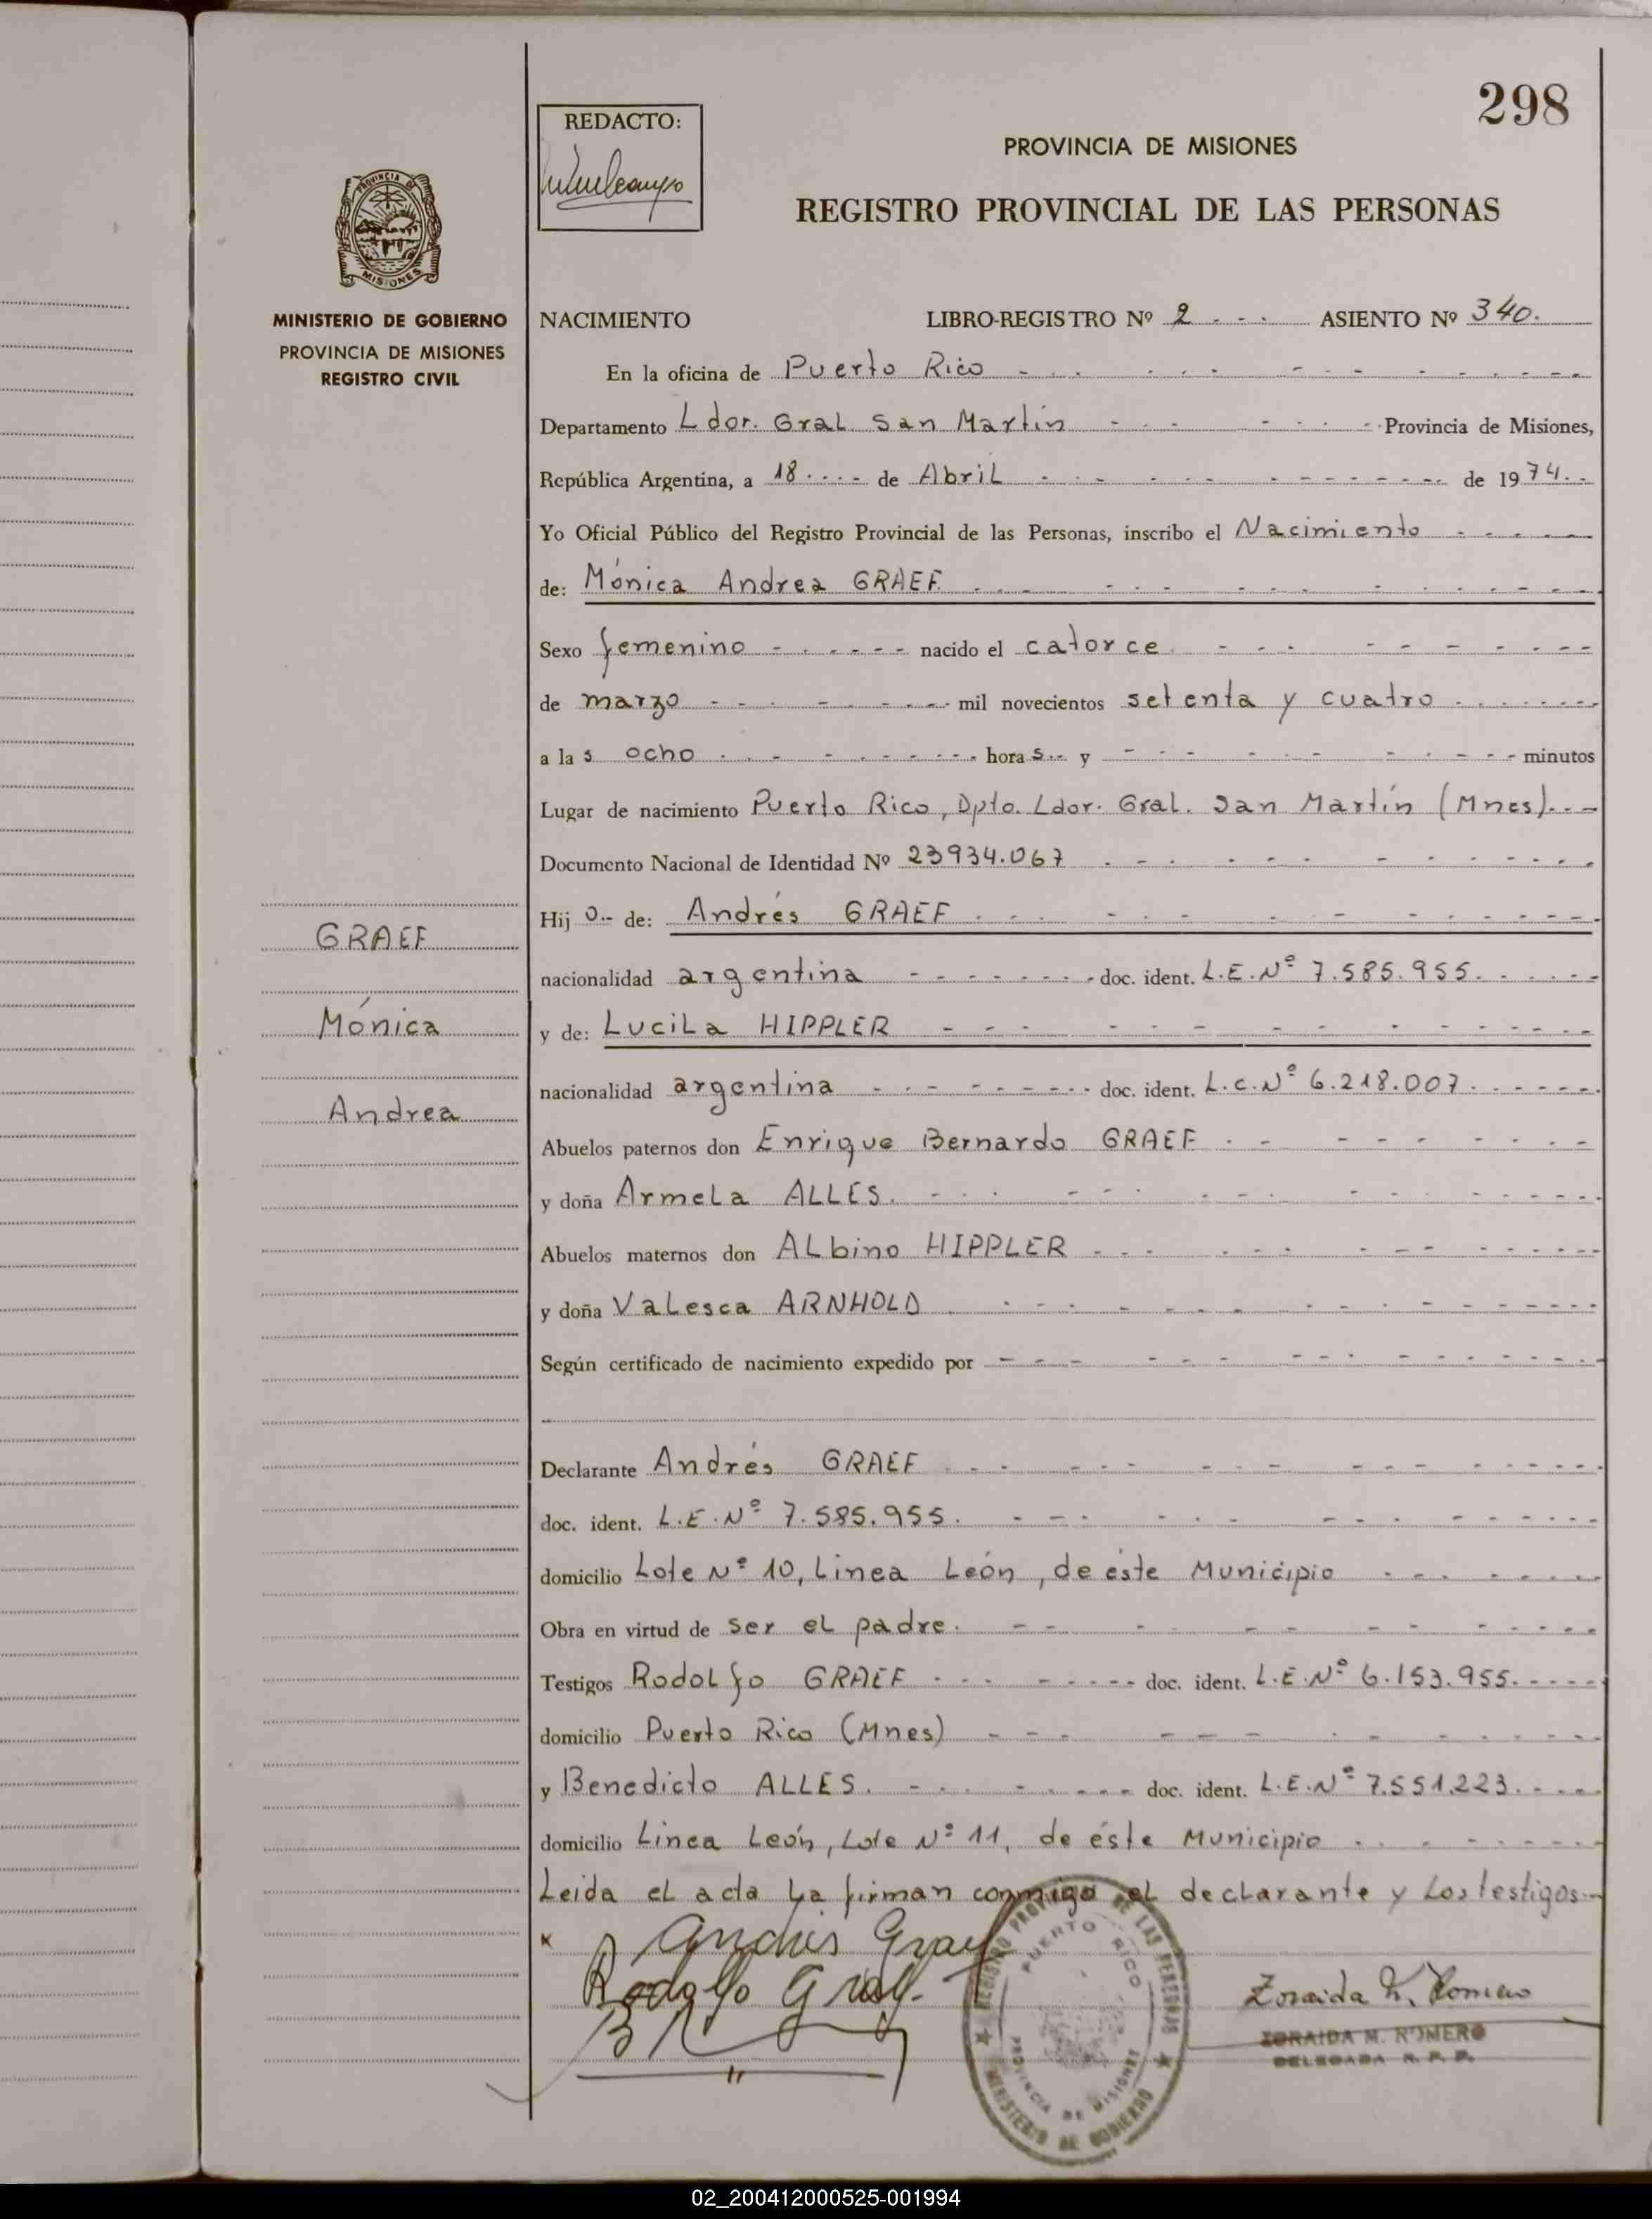 298
REDACTO:
PROVINCIA DE MISIONES
REGISTRO PROVINCIAL DE LAS PERSONAS
PROVINCIA DE
MISIONES
MINISTERIO DE GOBIERNO
PROVINCIA DE MISIONES
REGISTRO CIVIL
NACIMIENTO LIBRO-REGISTRO Nº 2 ASIENTO Nº 340.
En la oficina de Puerto Rico
Departamento Ldor. Gral. San Martín Provincia de Misiones,
República Argentina, a 18 de Abril de 1974.
Yo Oficial Público del Registro Provincial de las Personas, inscribo el Nacimiento
de: Mónica Andrea GRAEF.
Sexo femenino nacido el catorce
de marzo mil novecientos setenta y cuatro
a las ocho horas y minutos
Lugar de nacimiento Puerto Rico, Dpto. Ldor. Gral. San Martín (Mnes).
Documento Nacional de Identidad Nº 23934.067
Hijo de: Andrés GRAEF
nacionalidad argentina doc. ident. L.E.Nº 7.585.955.
y de: Lucila HIPPLER
nacionalidad argentina doc. ident. L.C.Nº 6.218.007.
Abuelos paternos don Enrique Bernardo GRAEF
y doña Armela ALLES.
Abuelos maternos don Albino HIPPLER
y doña Valesca ARNHOLD
Según certificado de nacimiento expedido por
Declarante Andrés GRAEF
doc. ident. L.E.Nº 7.585.955.
domicilio Lote Nº 10, Línea León, de éste Municipio
Obra en virtud de ser el padre.
Testigos Rodolfo GRAEF doc. ident. L.E.Nº 6.153.955.
domicilio Puerto Rico (Mnes)
y Benedicto ALLES. doc. ident. L.E.Nº 7.551.223.
domicilio Línea León, Lote Nº 11, de éste Municipio
Leída el acta la firman conmigo el declarante y los testigos.
GRAEF
Mónica
Andrea
Andrés Graef
Rodolfo Graef.
REGISTRO PROVINCIAL DE LAS PERSONAS
PUERTO RICO
PROVINCIA DE MISIONES
MINISTERIO DE GOBIERNO
Zoraida M. Romero
ZORAIDA M. ROMERO
DELEGADA R. P. P.
02_200412000525-001994